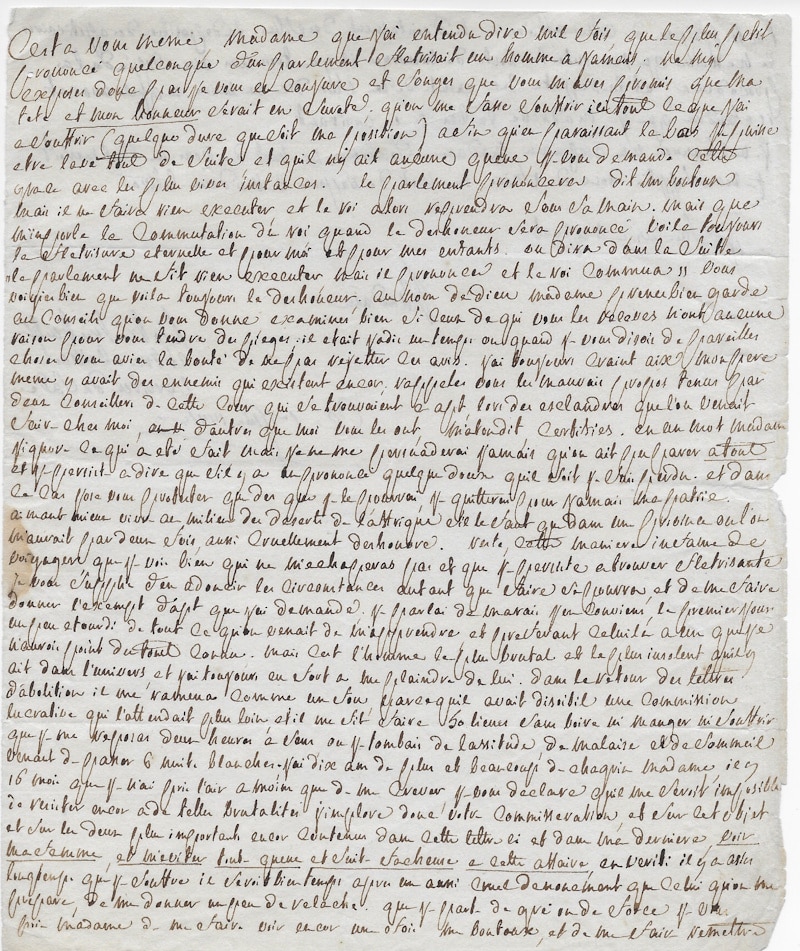 C'est a vous meme madame que j'ai entendu dire mil fois que le plus petit
prononcé quelconque d'un parlement fletrisait un homme a jamais. ne my
exposes donc pas je vous en conjure et songes que vous m'aves promis que ma
tete et mon honneur serait en sureté. qu'on me fasse souffrir ici tout ce que j'ai
a souffrir (quelque dure que soit ma position) afin qu'en paraissant la bas je puisse
etre lavé tout de suite et quil n'y ait aucune queue je vous demande cette
grace avec les plus vives instances. le parlement prononcera dit mr bontoux
mais il ne faira rien executer et le roi alors reprendra sous sa main. mais que
m'importe la commutation du roi quand le deshoneur sera prononcé voila toujours
la fletrisure eternelle et pour moi et pour mes enfants. on dira dans la suitte
le parlement ne fit rien executer mais il prononcea et le roi commua " vous
voiyes bien que voila toujours le deshoneur. au nom de dieu madame prenes bien garde
au conseils qu'on vous donne examinés bien si ceux de qui vous les receves n'ont aucune
raison pour vous tendre des pieges. il etait jadis un temps ou quand je vous disois de pareilles
choses vous avies la bonté de ne pas rejetter les avis. j'ai toujours craint aix mon pere
meme y avait des ennemis qui existent encor. rappeles vous les mauvais propos tenus par
deux conseillers de cette cour qui se trouvaient a apt lors des esclandres que l'on venait
faire ches moi, d'autres que moi vous les ont En un mot madame
j'ignore ce qui a été fait mais je ne me persuaderai jamais qu'on ait pu parer a tout
et je persiste a dire que s'il y a un prononcé quelque doux qu'il soit je suis perdu. et dans
ce cas jose vous protester que des que je le pourrai je quitterai pour jamais ma patrie.
aimant mieux vivre au milieu des deserts de l'affrique s'il le faut que dans une province ou l'on
m'aurait par deux fois, aussi cruellement deshonoré. reste, cette maniere infame de
voiyagere que je vois bien qui ne m'echappera pas et que je persiste a trouver fletrisante
je vous supplie d'en adoucir les circonstances autant que faire se pourra, et de me faire
donner l'exempt d'apt que j'ai demandé. je parlai de marais j'en conviens, le premier jour
un peu etourdi de tout ce qu'on venait de m'apprendre et preferant celui la a un que je
n'aurois point du tout connu. mais c'est l'homme le plus brutal et le plus insolent quil y
ait dans l'univers et j'ai toujours eu fort a me plaindre de lui. dans le retour des lettres
d'abolition il me ramena comme un fou parce quil avait disoitil une commission
lucrative qui l'attendait plus loin et il me fit faire 30 lieues sans boire ni manger ni souffrir
que je me reposas deux heures a sens ou je tombais de lassitude, de malaise et de sommeil
venant de passer 6 nuits blanches. j'ai dix ans de plus et beaucoup de chagrin madame il y a
16 mois que je n'ai pris l'air a moins que de me crever je vous declare qu'il me seroit impossible
de resister encor a de telles brutalités j'implore donc votre commiseration, et sur cet objet
et sur les deux plus importants encor contenus dans cette lettre ci et dans ma derniere, voir
ma femme, et m'eviter tout queue et suitte facheuse a cette affaire en verité il y a asses
longtemps que je souffre il seroit bien temps apres un aussi cruel denouement que celui qu'on me
prepare, de me donner un peu de relache. que je parte de gré ou de force je vous
prie madame de me faire voir encor une fois mr bontoux, et de me faire remettre